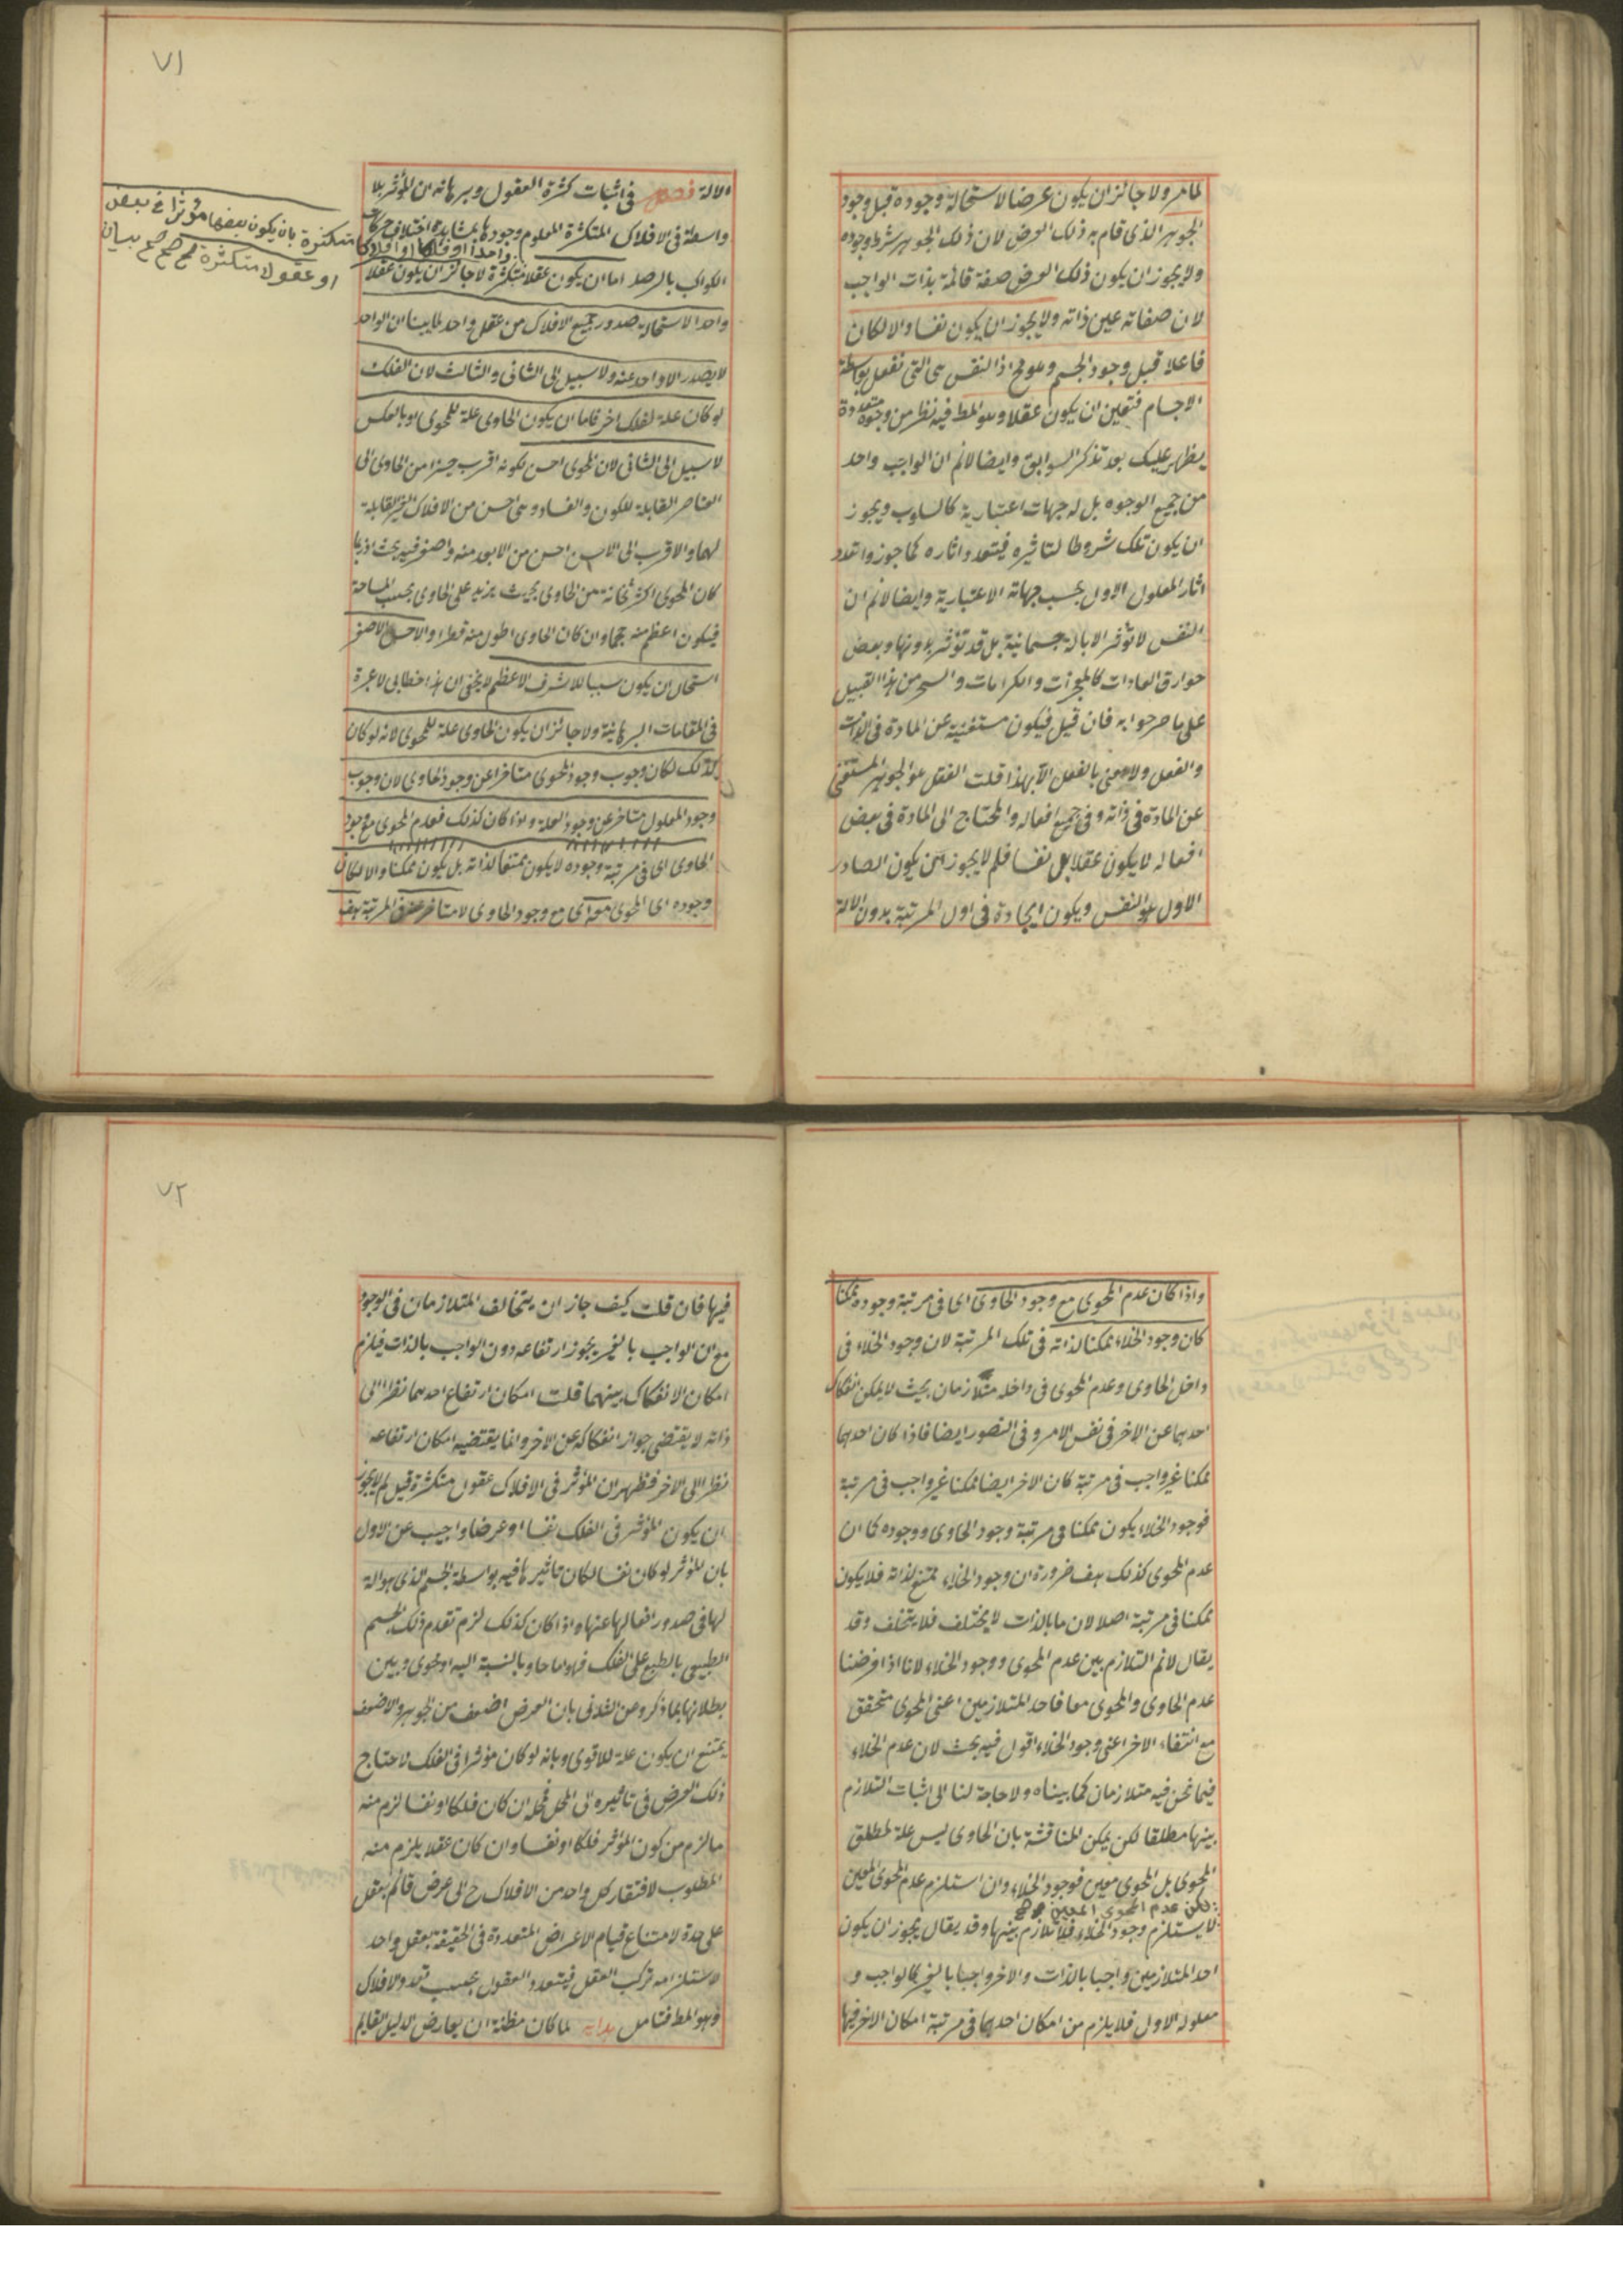 لما مر ولا جائز ان يكون عرضا لاستحالة وجوده قبل وجود
الجوهر الذى قام به ذلك العرض لان ذلك الجوهر شرط وجوده
ولا يجوز ان يكون ذلك العرض صفة قائمة بذات الواجب
لان صفاته عين ذاته ولا يجوز ان يكون نفسا والا لكان
فاعلا قبل وجود الجسم وهو مح اذ النفس هى التى تفعل بواسطة
الاجسام فتعين ان يكون عقلا وهو المط فيه نظر من وجوه متعددة
يظهر عليك بعد تذكر السوابق وايضا لانم ان الواجب واحد
من جميع الوجوه بل له جهات اعتبارية كالسلوب ويجوز
ان يكون تلك شروطا لتاثيره فيتعدد اثاره كما جوزوا تعدد
اثار المعلول الاول بحسب جهاته الاعتبارية وايضا لانم ان
النفس لا تؤثر الا بالة جسمانية بل قد تؤثر بدونها وبعض
خوارق العادات كالمعجزات والكرامات والسحر من هذا القبيل
على ما صرحوا به فان قيل فيكون مستغنية عن المادة فى الذات
والفعل ولا معنى بالفعل الا بهذا قلت العقل هو الجوهر المستغنى
عن المادة فى ذاته وفى جميع افعاله والمحتاج الى المادة فى بعض
افعاله لا يكون عقلا بل نفسا فلم لا يجوز ان يكون الصادر
الاول هو النفس ويكون ايجاده فى اول المرتبة بدون الالة
٧١
الالة فصل فى اثبات كثرة العقول وبرهانه ان المؤثر بلا
واسطة فى الافلاك المتكثرة المعلوم وجودها بمشاهدة اختلاف حركات
واحدا او فلكا او افلاكا
متكثرة بان يكون بعضها مؤثرا فى بعض
او عقولا متكثرة صح صح صح بيان
الكواكب بالرصد اما ان يكون عقلا متكثرة لا جائز ان يكون عقلا
واحدا لاستحالة صدور جميع الافلاك من عقل واحد لما بينا ان الواحد
لا يصدر الا واحد عنه ولا سبيل الى الثانى والثالث لان الفلك
لو كان علة لفلك اخر فاما ان يكون الحاوى علة للمحوى او بالعكس
لا سبيل الى الثانى لان المحوى اخس لكونه اقرب حيزا من الحاوى الى
العناصر القابلة للكون والفساد وهى اخس من الافلاك الغير القابلة
لهما والاقرب الى الاخس اخس من الابعد منه واصغر فيه بحث اذ ربما
كان المحوى اكثر ثخانة من الحاوى بحيث يزيد على الحاوى بحسب المساحة
فيكون اعظم منه حجما وان كان الحاوى اطول منه قطرا والاخس الاصغر
استحال ان يكون سببا للاشرف الاعظم لا يخفى ان هذا خطابى لا عبرة
فى المقامات البرهانية ولا جائز ان يكون الحاوى علة للمحوى لانه لو كان
كذلك لكان وجوب وجود المحوى متاخرا عن وجود الحاوى لان وجوب
وجود المعلول متاخر عن وجود العلة واذا كان كذلك فعدم المحوى مع وجود
الحاوى اى فى مرتبة وجوده لا يكون ممتنعا لذاته بل يكون ممكنا والا لكان
وجوده اى المحوى معه اى مع وجود الحاوى لا متاخر عنه فى المرتبة هف
واذا كان عدم المحوى مع وجود الحاوى اى فى مرتبة وجوده ممكنا
كان وجود الخلاء ممكنا لذاته فى تلك المرتبة لان وجود الخلاء فى
داخل الحاوى وعدم المحوى فى داخله متلازمان بحيث لا يمكن انفكاك
احدهما عن الاخر فى نفس الامر وفى التصور ايضا فاذا كان احدهما
ممكنا غير واجب فى مرتبة كان الاخر ايضا ممكنا غير واجب فى مرتبة
فوجود الخلاء يكون ممكنا فى مرتبة وجود الحاوى ووجوده كما ان
عدم المحوى كذلك هف ضرورة ان وجود الخلاء ممتنع لذاته فلا يكون
ممكنا فى مرتبة اصلا لان ما بالذات لا يختلف فلا يتخلف وقد
يقال لانم التلازم بين عدم المحوى ووجود الخلاء لانا اذا فرضنا
عدم الحاوى والمحوى معا فاحد المتلازمين اعنى المحوى متحقق
مع انتفاء الاخر اعنى وجود الخلاء اقول فيه بحث لان عدم الخلاء
فيما نحن فيه متلازمان كما بيناه ولا حاجة لنا الى اثبات التلازم
بينهما مطلقا لكن يمكن المناقشة بان الحاوى ليس علة لمطلق
المحوى بل المحوى معين فوجود الخلاء وان استلزم عدم المحوى المعين
لكن عدم المحوى المعين
لا يستلزم وجود الخلاء فلا تلازم بينهما وقد يقال يجوز ان يكون
احد المتلازمين واجبا بالذات والاخر واجبا بالغير كالواجب و
معلوله الاول فلا يلزم من امكان احدهما فى مرتبة امكان الاخر فيها
٧٢
فيها فان قلت كيف جاز ان يتخالف المتلازمان فى الوجود
مع ان الواجب بالغير يجوز ارتفاعه دون الواجب بالذات فيلزم
امكان الانفكاك بينهما قلت امكان ارتفاع احدهما نظرا الى
ذاته لا يقتضى جواز انفكاكه عن الاخر وانما يقتضيه امكان ارتفاعه
نظرا الى الاخر فظهر ان المؤثر فى الافلاك عقول متكثرة قيل لم لا يجوز
ان يكون المؤثر فى الفلك نفسا او عرضا واجيب عن الاول
بان المؤثر لو كان نفسا لكان تاثيرها فيه بواسطة الجسم الذى هو الة
لها فى صدور افعالها عنها واذا كان كذلك لزم تقدم ذلك الجسم
الطبيعى بالطبع على الفلك فهو اما حاو بالنسبة اليه او محوى وبين
بطلانهما بما ذكر وعن الثانى بان العرض اضعف من الجوهر والاضعف
يمتنع ان يكون علة للاقوى وبانه لو كان مؤثرا فى الفلك لاحتاج
ذلك العرض فى تاثيره الى المحل فمحله ان كان فلكا او نفسا لزم منه
ما لزم من كون المؤثر فلكا او نفسا وان كان عقلا يلزم منه
المطلوب لافتقار كل واحد من الافلاك ح الى عرض قائم بعقل
على حدة لامتناع قيام الاعراض المتعددة فى الحقيقة بعقل واحد
لاستلزامه تركب العقل فيتعدد العقول بحسب تعدد الافلاك
وهو المط فتامل هداية لما كان مظنة ان يعارض الدليل القايم